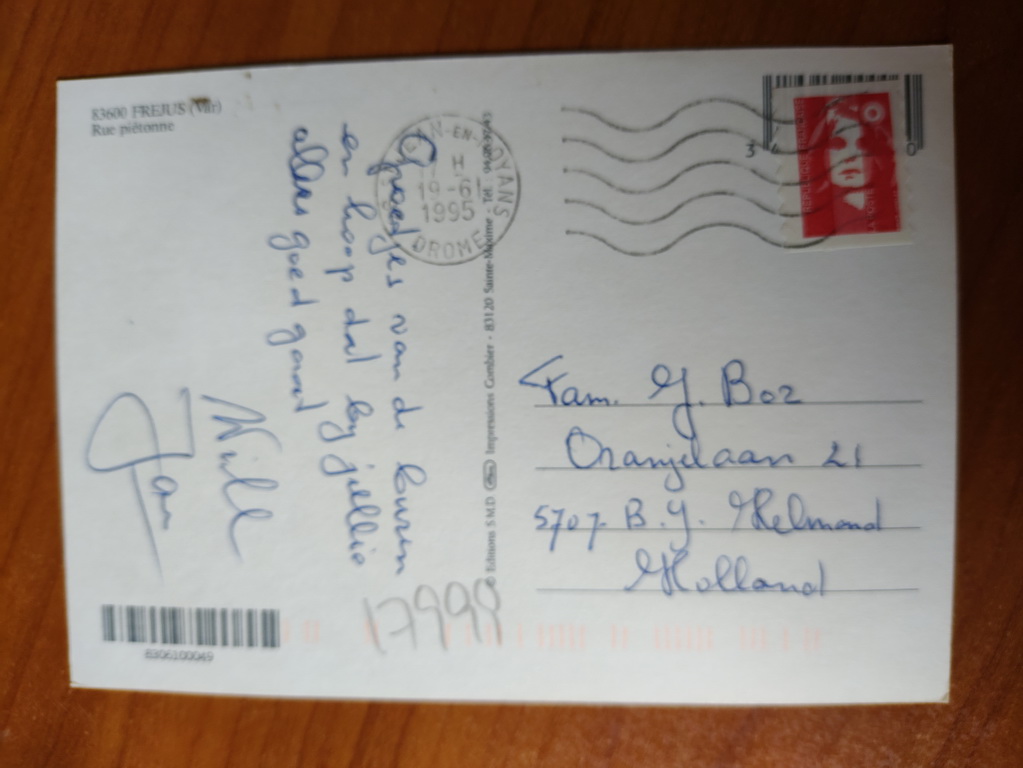 83600 FREJUS (Var)
Rue piétonne
Groetjes van de buren
en hoop dat by jullie
alles goed gaat
Will
Jan
EN-ROYANS
19-6
1995
DROME
© Editions S.M.D. Impressions Combier - 83120 Sainte-Maxime - Tél.
Fam. G. Boz
Oranjelaan 21
5707 B.G. Helmond
Holland
17999
6306100049